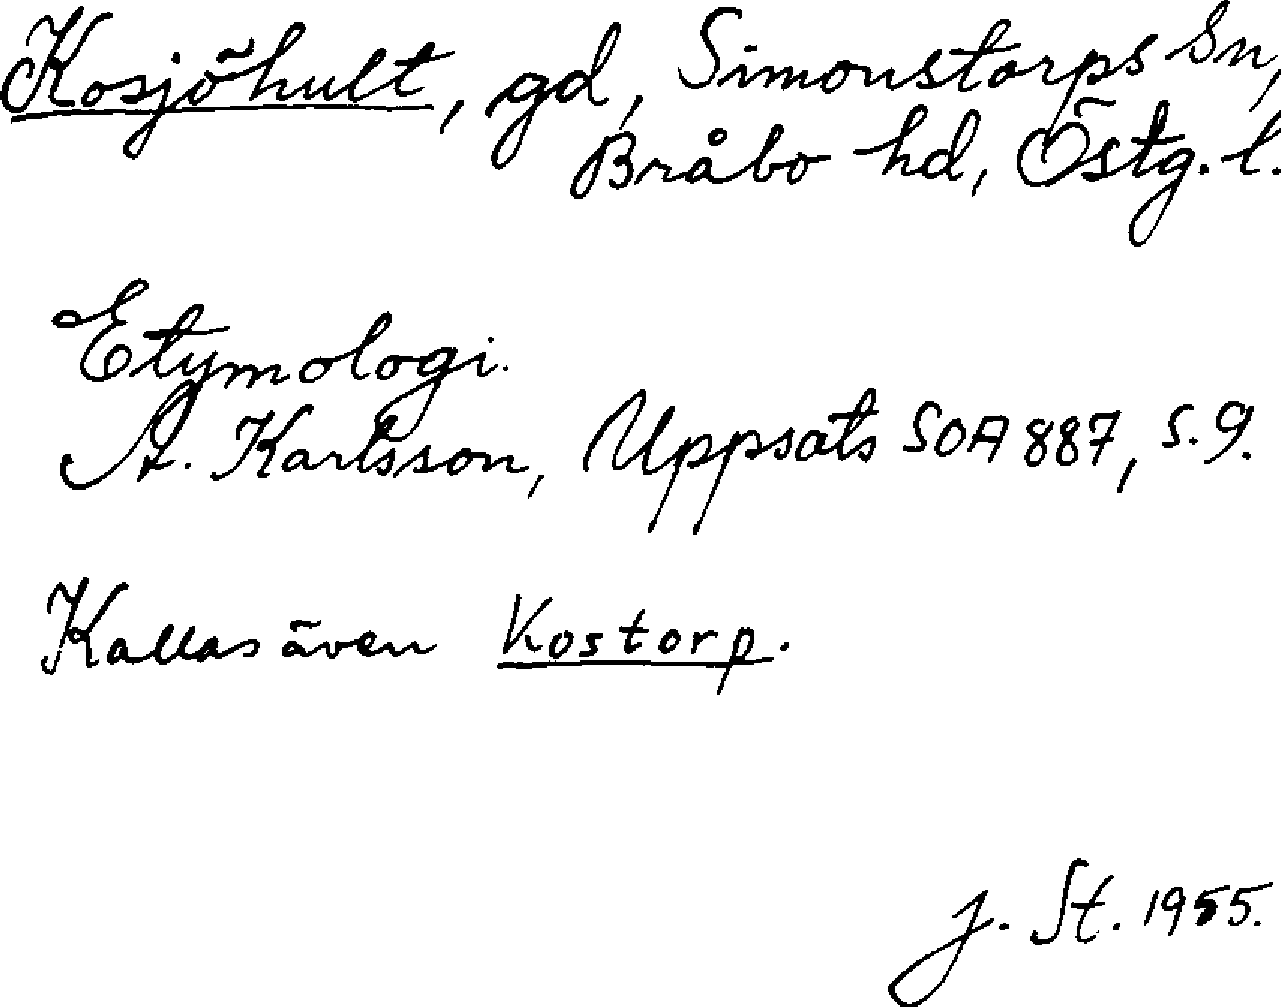 Kosjöhult, gd, Simonstorps Sn,
Bråbo hd, Östg. l.
Etymologi.
A. Karlsson, Uppsats SOA 887, s. 9.
Kallas även Kostorp.
J. St. 1955.